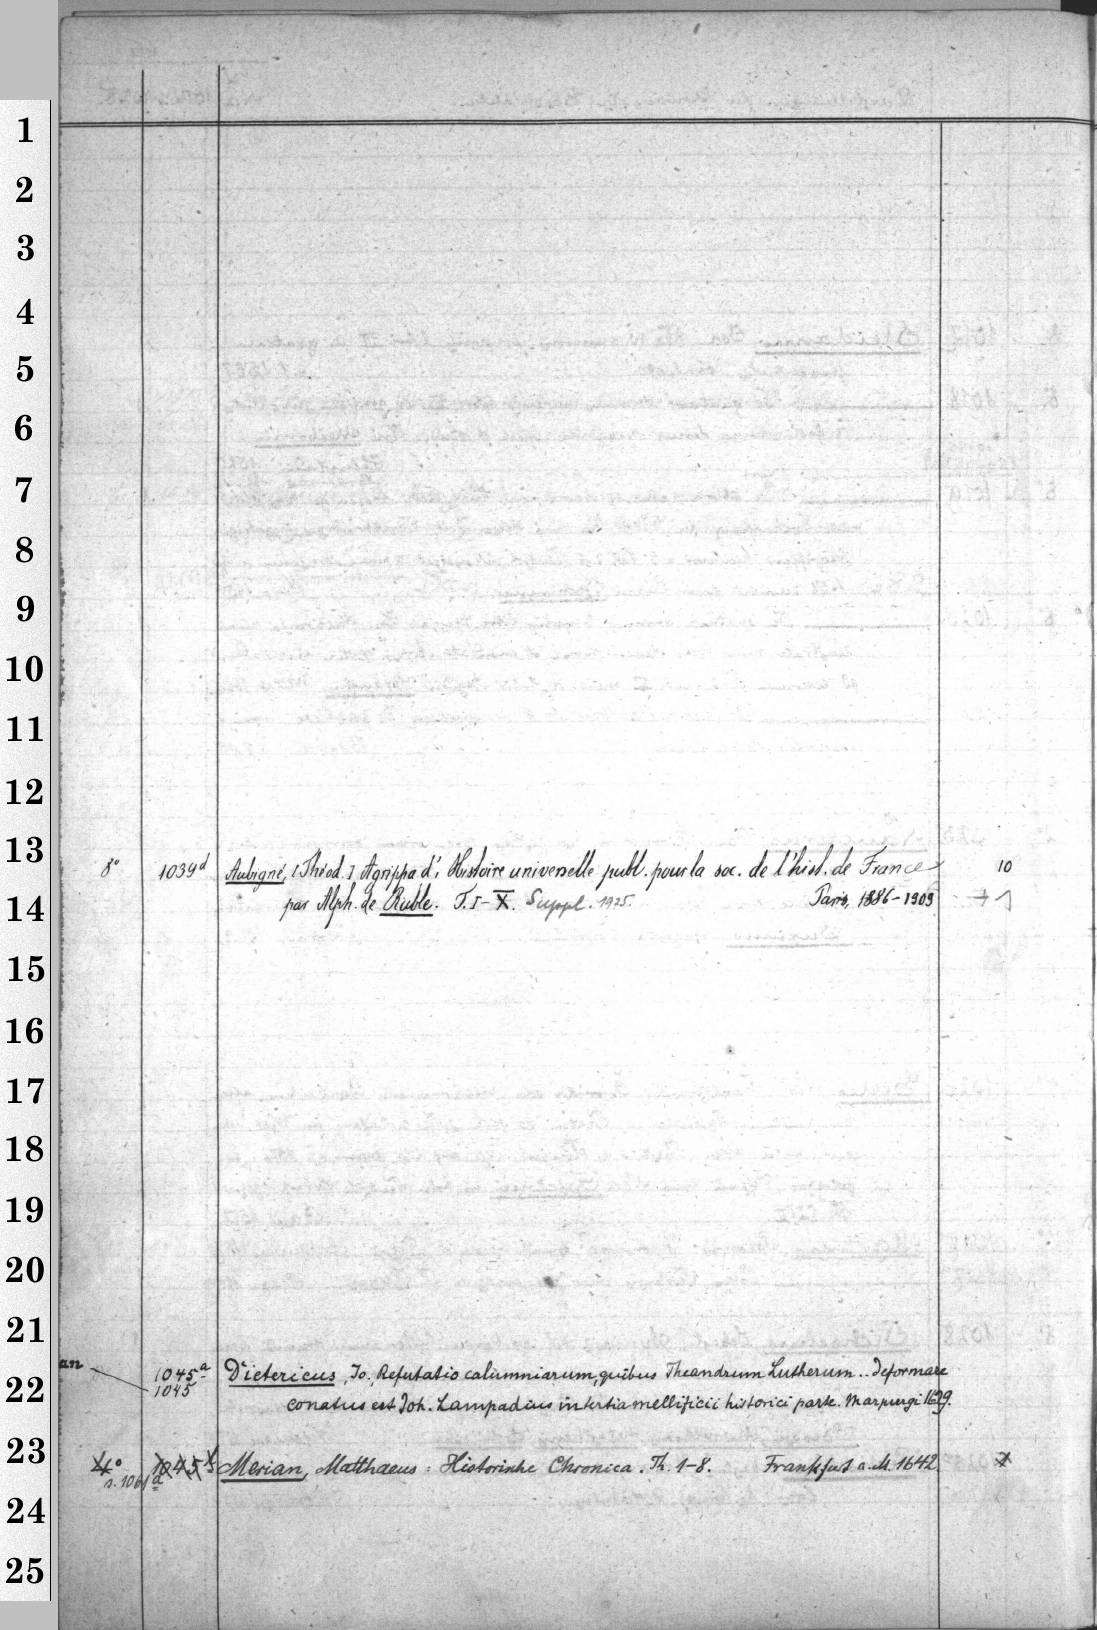 1
2
3
4
5
6
7
8
9
10
11
12
13
8° 1039d Aubigné, [Théod.] Agrippa d': Histoire universelle publ. pour la soc. de l'hist. de France 10
14
par Alph. de Ruble. T. I-X. Suppl. 1925. Paris, 1886-1909 +1
15
16
17
18
19
20
21
22
an 1045a Dietericus, Jo., Refutatio calumniarum, quibus Theandrum Lutherum .. deformare
1045 conatus est Joh. Lampadius in tertia mellificii historici parte. Marpurgi 1629.
23
4° 1045b Merian, Matthaeus: Historische Chronica. Th. 1-8. Frankfurt a. M. 1642.
s. 1061d
24
25